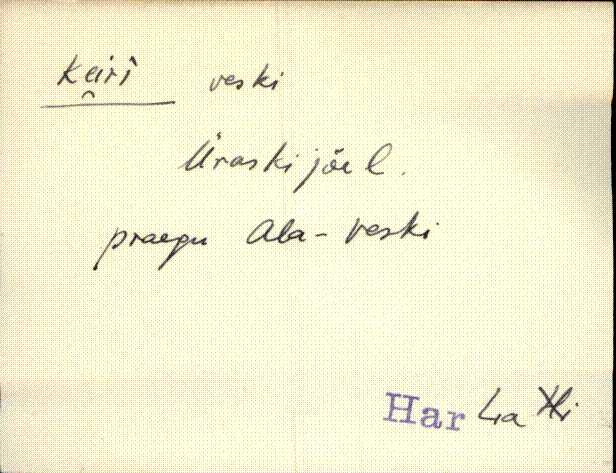 Keiri veski
Üraski jõel.
praegu Ala-Veski
Har La